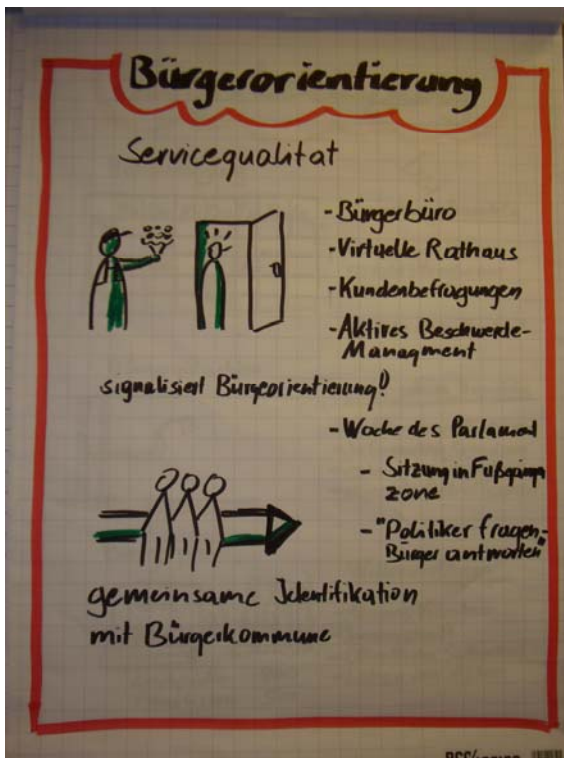 Bürgerorientierung
Servicequalitat
- Bürgerbüro
- Virtuelle Rathaus
- Kundenbefragungen
- Aktives Beschwerde-
Managment
signalisiert Bürgeorientierung!
- Woche des Parlament
- Sitzung in Fußgänge
zone
- "Politiker fragen-
Bürger antworten"
gemeinsame Identifikation
mit Bürgerkommune